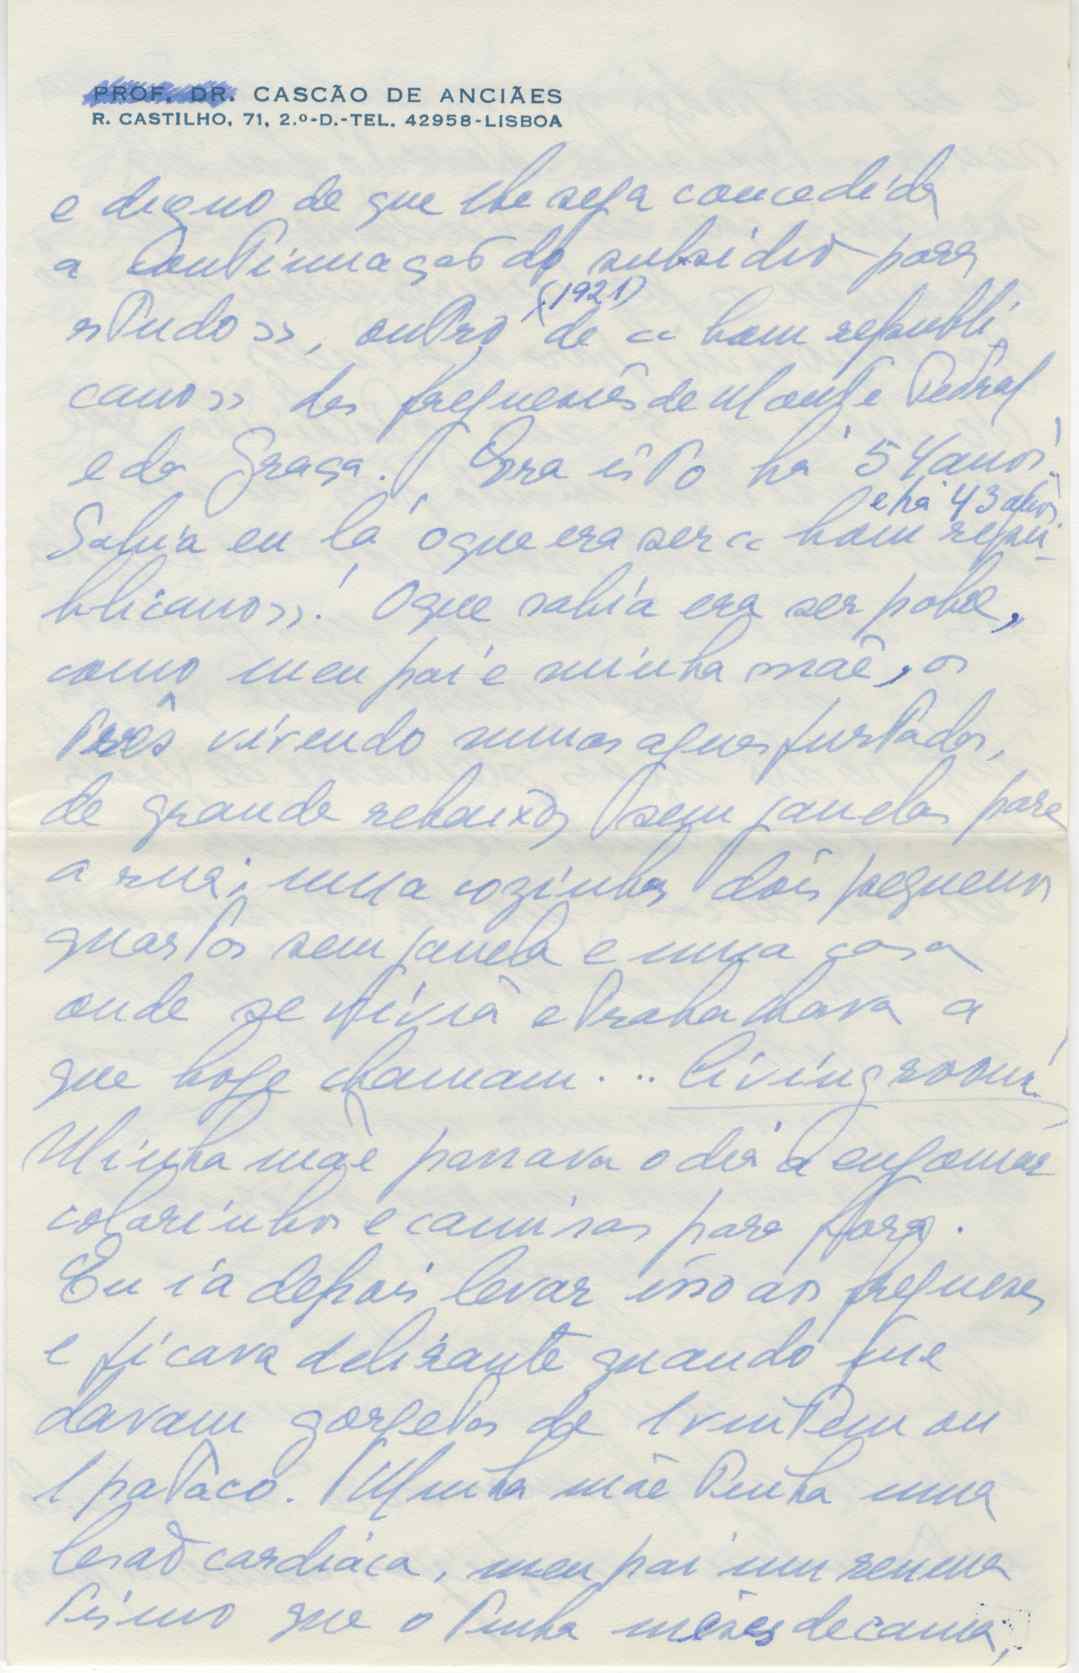 PROF. DR. CASCÃO DE ANCIÃES
R. CASTILHO, 71, 2.º-D.-TEL. 42958-LISBOA
e digno de que lhe seja concedida
a continuação do subsídio para
estudo», outro (1921) de « bom republi
cano» das freguesias de Monte Pedral
e da Graça. Ora isto há 54 anos
e há 43 anos!
Sabia eu lá o que era ser « bom repu-
blicano»! O que sabia era ser pobre,
como meu pai e minha mãe, os
três vivendo numas aguas furtadas,
de grande rebaixo, sem janelas para
a rua; uma cozinha, dois pequenos
quartos sem janela e uma casa
onde se vivia e trabalhava a
que hoje chamam... living room!
Minha mãe passava o dia a engomar
colarinhos e camisas para fora.
Eu ia depois levar isso aos fregueses
e ficava delirante quando me
davam gorjetas de 1 vintem ou
1 pataco. Minha mãe tinha uma
lesão cardíaca, meu pai um reuma
tismo que o tinha mêses de cama,